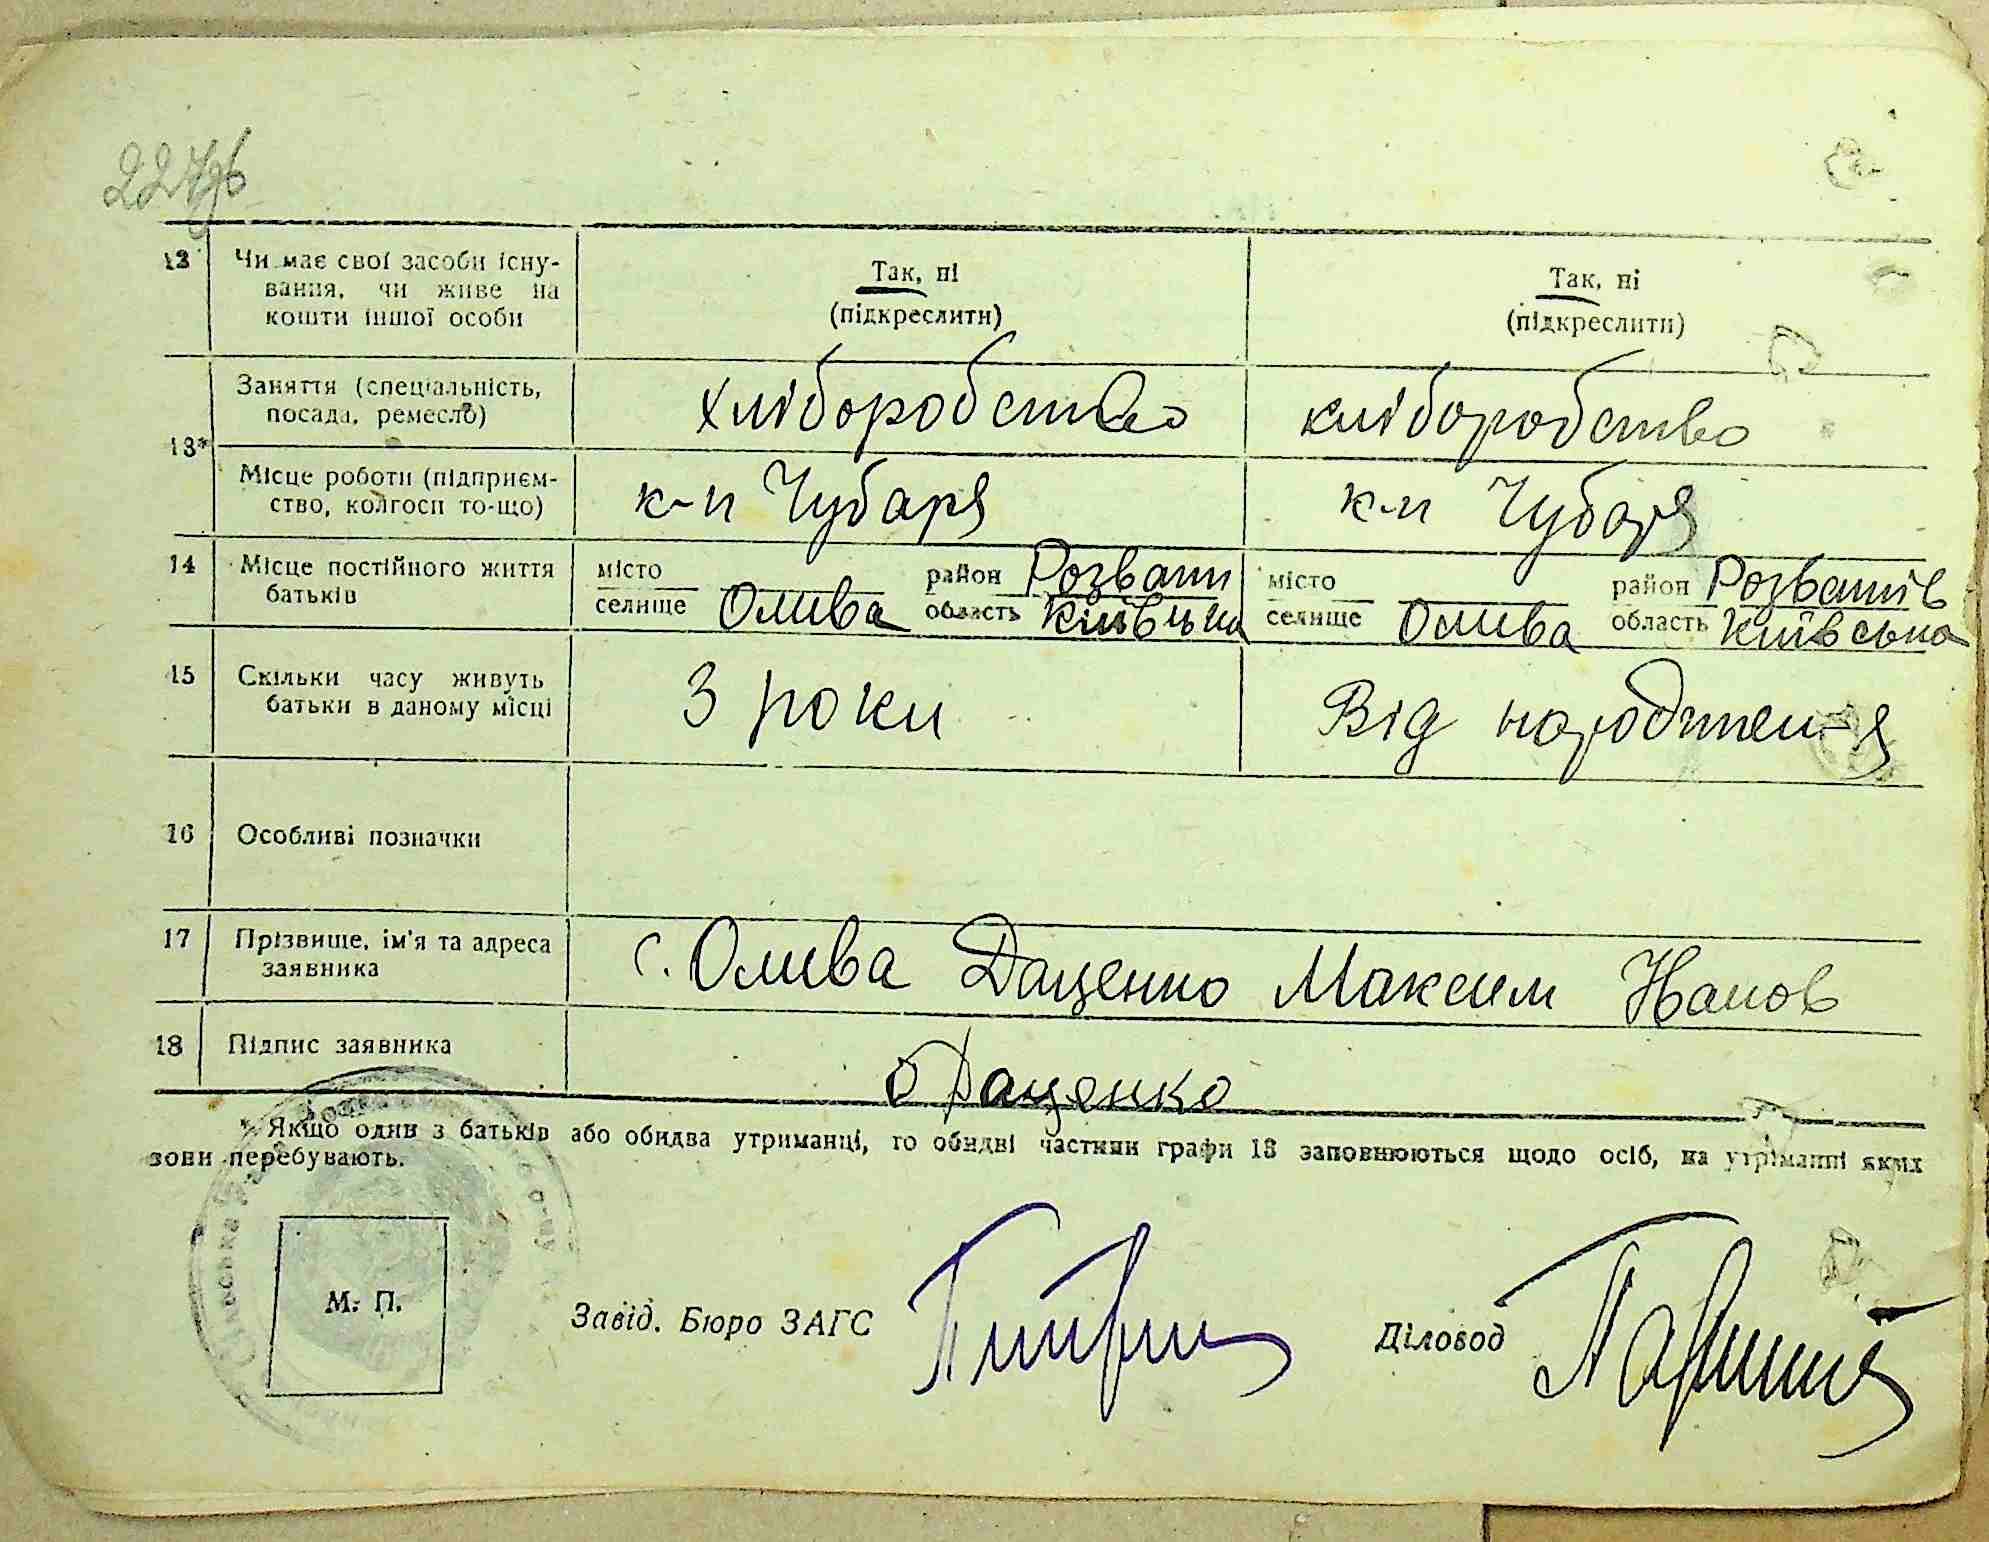 12 Чи має свої засоби існу- Так, ні Так, ні
вання, чи живе на (підкреслити) (підкреслити)
кошти іншої особи
Заняття (спеціальність, хліборобство хліборобство
посада, ремесло)
13*
Місце роботи (підприєм- к-п Чубаря к-п Чубаря
ство, колгосп то-що)
14 Місце постійного життя місто район Розваж місто район Розважів
батьків селище Олива область Київська селище Олива область Київська
15 Скільки часу живуть 3 роки Від народження
батьки в даному місці
16 Особливі позначки
17 Прізвище, ім'я та адреса с. Олива Даценко Максим
заявника
18 Підпис заявника Даценко
* Якщо один з батьків або обидва утриманці, то обидві частини графи 13 заповнюються щодо осіб, на утріманні яких
вони перебувають.
М. П. Завід. Бюро ЗАГС Діловод